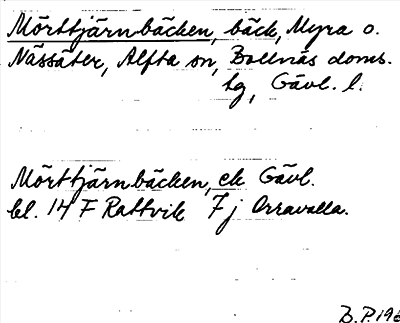 Mörttjärnbäcken, bäck, Myra o.
Nässäter, Alfta sn, Bollnäs doms.
tg, Gävl. l.
Mörttjärnbäcken, ek Gävl.
bl. 14 F Rättvik 7 j Orravalla.
B.P.196